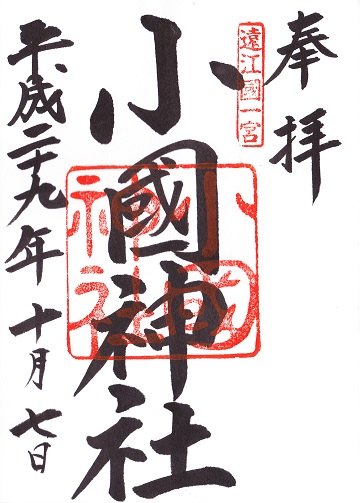 奉拝
遠江國一宮
小國神社
小國神社
平成二十九年十月七日